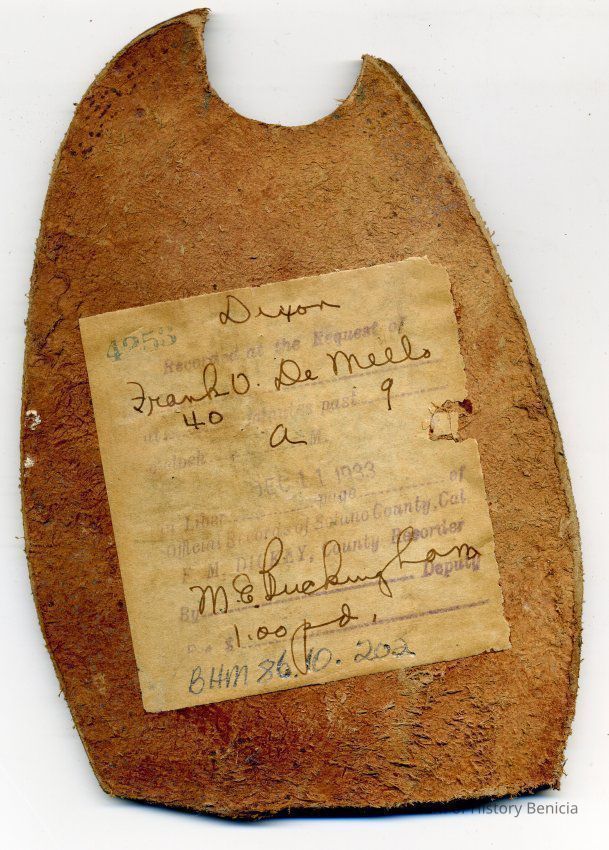 Dixon
4253
Recorded at the Request of
Frank V. De Mello
40 minutes past 9
a M.
DEC 11 1933
in Liber page of
Official Records of Solano County, Cal
County Recorder
M. E. Buckingham
By Deputy
Fee $ 1.00 pd.
BHM 86.10.202
History Benicia